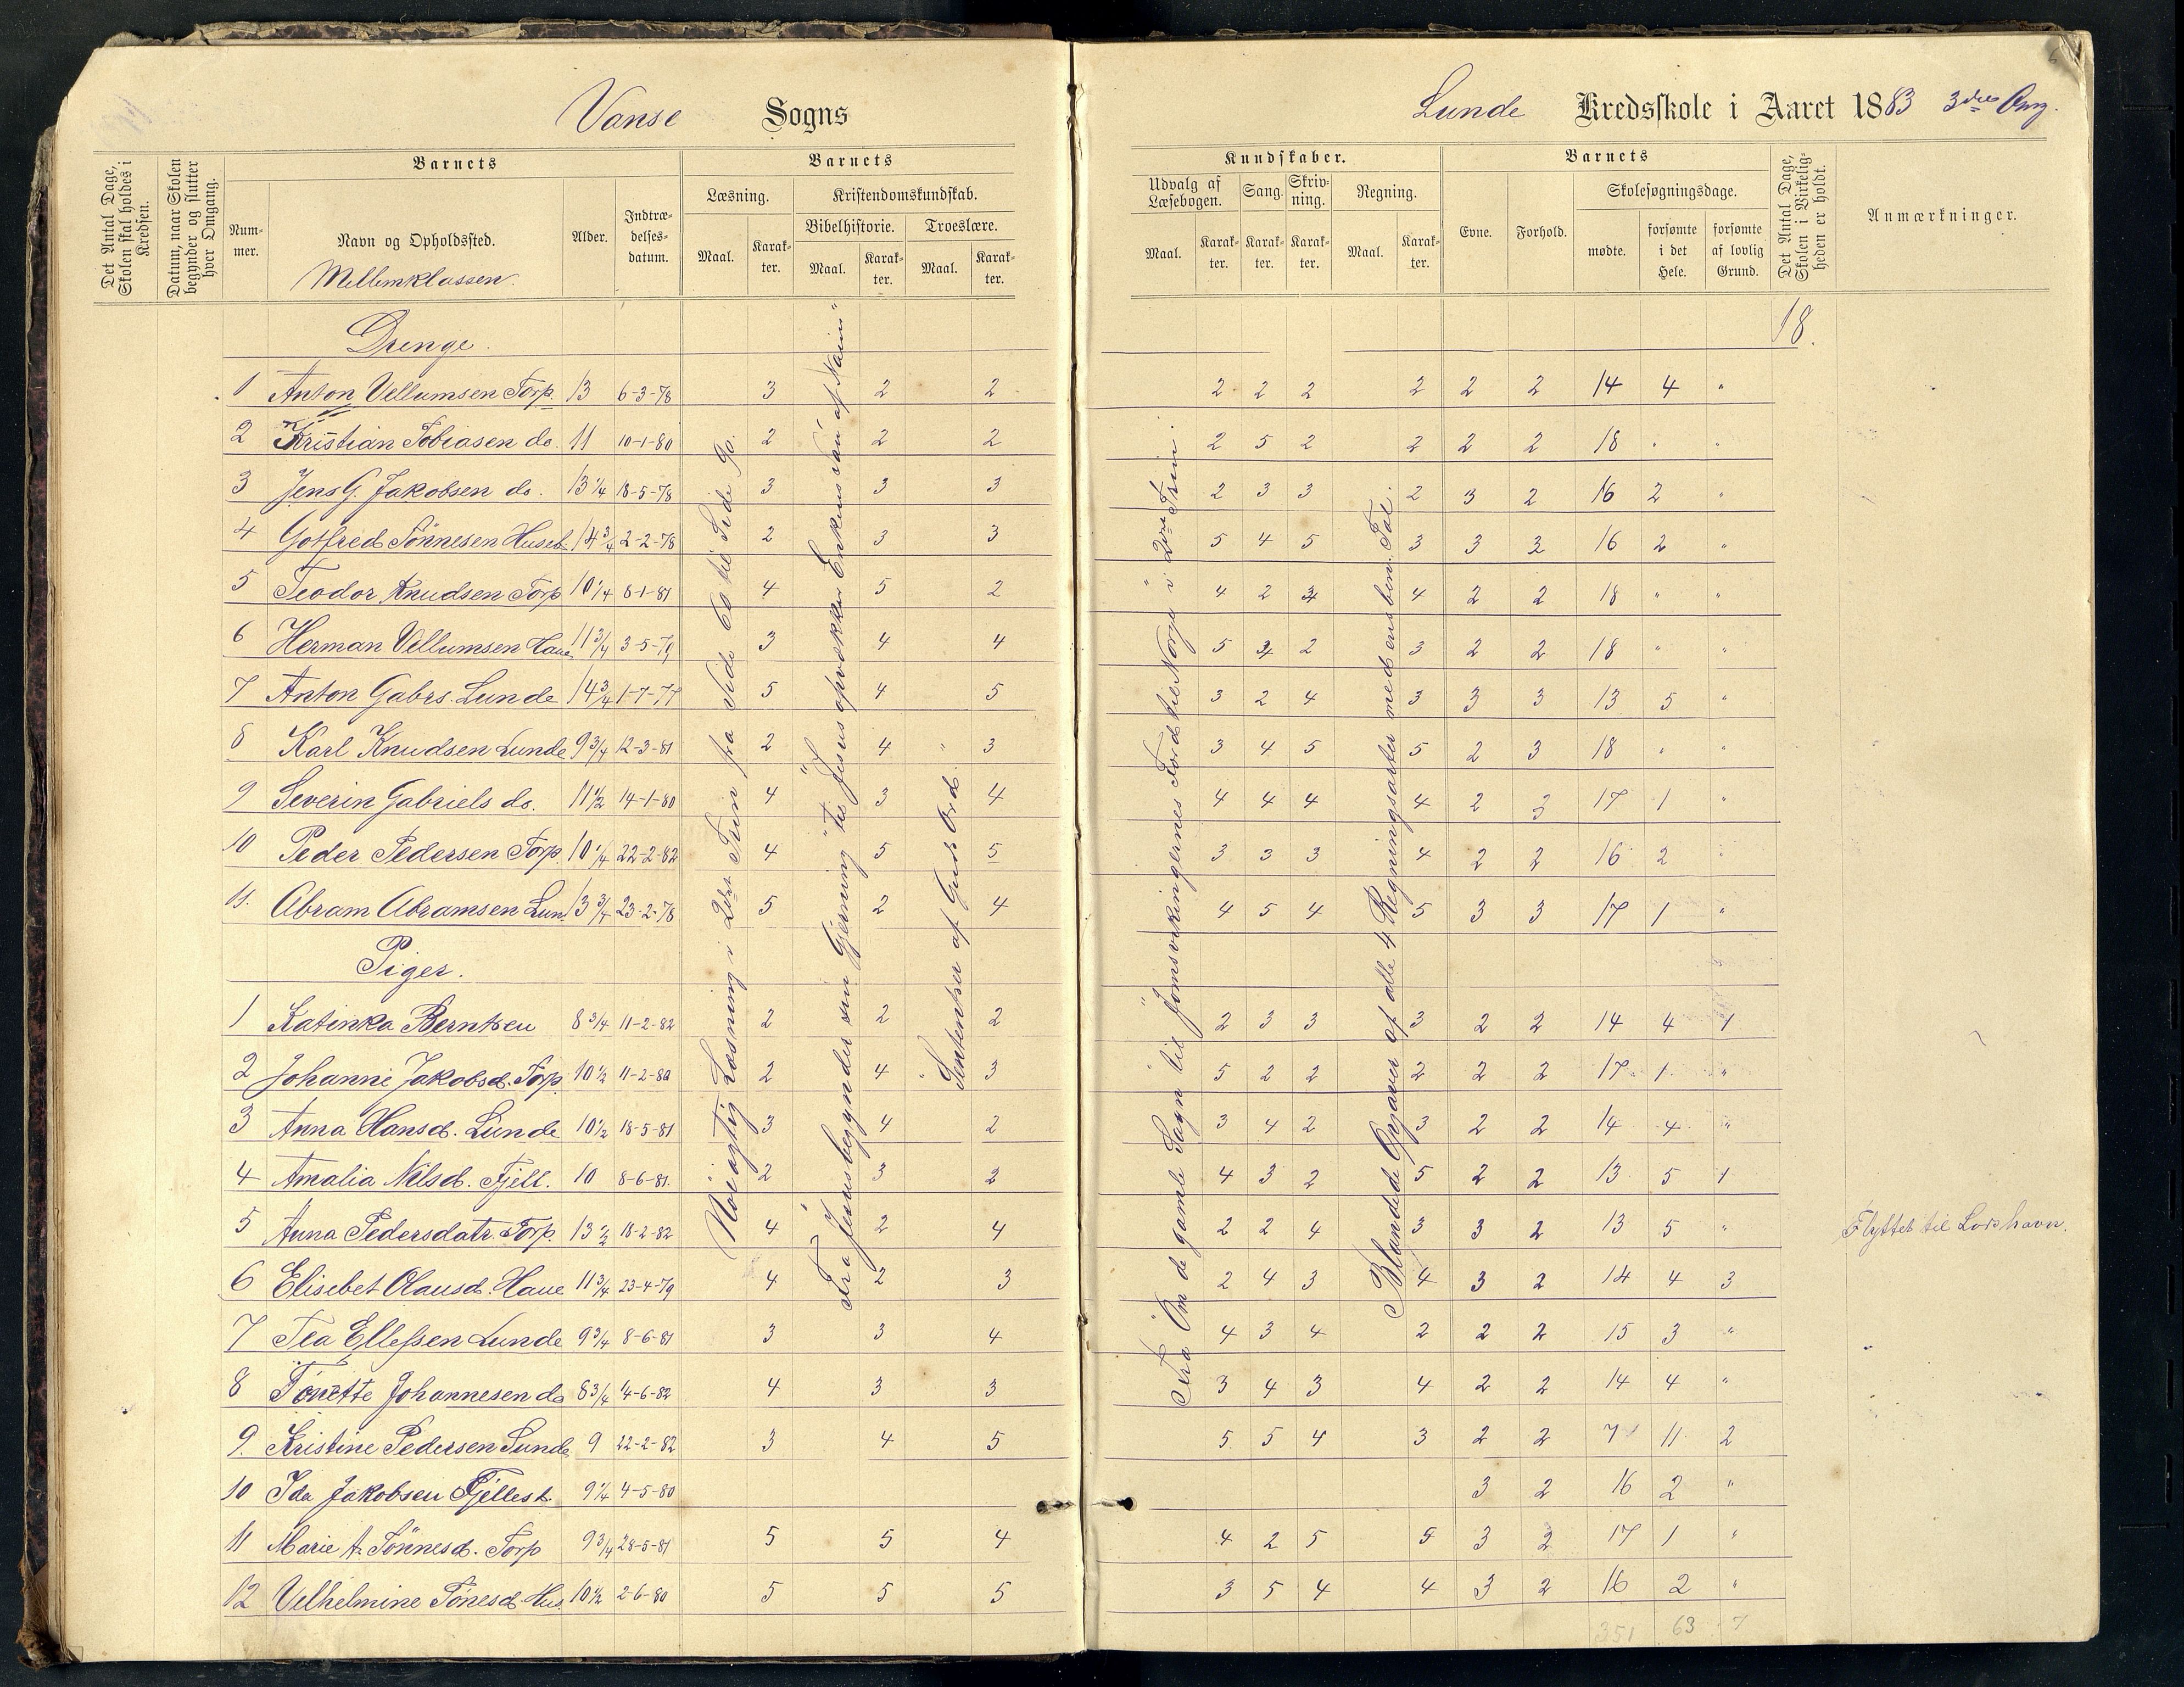 Vanse Sogns
Lunde Kredsskole i Aaret 1883 3die Omg.
Det Antal Dage, Skolen skal holdes i Kredsen.
Datum, naar Skolen begynder og slutter hver Omgang.
Barnets
Nummer.
Navn og Opholdssted.
Mellemklassen.
Alder.
Indtrædelsesdatum.
Barnets
Læsning.
Maal. Karakter.
Kristendomskundskab.
Bibelhistorie. Troeslære.
Maal. Karakter. Maal. Karakter.
Kundskaber.
Udvalg af Læsebogen. Sang. Skrivning. Regning.
Maal. Karakter. Karakter. Karakter. Maal. Karakter.
Barnets
Evne. Forhold. Skolesøgningsdage.
mødte. forsømte i det Hele. forsømte af lovlig Grund.
Det Antal Dage, Skolen i Virkeligheden er holdt.
Anmærkninger.
Drenge. 18.
1 Anton Vellumsen Torp. 13 6-3-78 3 2 2 2 2 2 2 2 2 14 4 "
2 Kristian Tobiasen do. 11 10-1-80 2 2 2 2 5 2 2 2 2 18 " "
3 Jens G. Jakobsen do. 13 1/4 18-5-78 3 3 3 2 3 3 2 3 2 16 2 "
4 Gotfred Tönnesen Huseb. 14 3/4 2-2-78 2 3 3 5 4 5 3 3 2 16 2 "
5 Teodor Knudsen Torp 10 1/4 8-1-81 4 5 2 4 2 3 4 2 2 18 " "
6 Herman Vellumsen Haue 11 3/4 3-5-79 3 4 4 5 3 2 3 2 2 18 " "
7 Anton Gabrs. Lunde 14 3/4 1-7-77 5 4 5 3 2 4 3 3 3 13 5 "
8 Karl Knudsen Lunde 9 3/4 12-3-81 2 4 3 3 4 5 5 2 3 18 " "
9 Severin Gabriels do. 11 1/2 14-1-80 4 3 4 4 4 4 4 2 3 17 1 "
10 Peder Pedersen Torp. 10 1/4 22-2-82 4 5 5 3 3 3 4 2 2 16 2 "
11. Abram Abramsen Lun. 13 3/4 23-2-78 5 2 4 4 5 4 5 3 3 17 1 "
Piger.
1 Katinka Berntsen 8 3/4 11-2-82 2 2 2 2 3 3 3 2 2 14 4 1
2 Johanne Jakobsd. Torp. 10 1/2 11-2-80 2 4 3 5 2 2 2 2 2 17 1 "
3 Anna Hansd. Lunde 10 1/2 18-5-81 3 4 2 3 4 2 3 2 2 14 4 "
4 Amalia Nilsd. Fjell. 10 8-6-81. 2 3 2 4 3 2 5 2 2 13 5 1
5 Anna Pedersdatr. Torp. 13 1/2 18-2-82 4 2 4 2 2 4 3 3 2 13 5 " Flyttet til Loshavn.
6 Elisebet Olausd. Haue 11 3/4 23-4-79 4 2 3 2 4 3 4 3 2 14 4 3
7 Tea Ellefsen Lunde 9 3/4 8-6-81 3 3 4 4 3 4 2 2 2 15 3 "
8 Tonette Johannesen do 8 3/4 4-6-82 4 3 3 3 4 3 4 2 2 14 4 "
9. Kristine Pedersen Lunde 9 22-2-82 3 4 5 5 5 4 3 2 2 7 11 2
10 Ida Jakobsen Fjellest. 9 1/4 4-5-80 3 2 16 2 "
11 Marie A. Tönnesd. Torp 9 3/4 28-5-81 5 5 4 4 2 5 5 3 2 17 1 "
12 Velhelmine Tönesd. Hus. 10 1/2 2-6-80 5 5 5 3 5 4 4 3 2 16 2 "
351 63 7
Nöiagtig Læsning i 2det Trin fra Side 60 til Side 90.
Fra "Jesus begynder sin Gjerning" til "Jesus opvækker Enkens Sön af Nain"
"Sentenser af Guds Ord."
Fra "Om de gamle Sagn" til "Jomsvikingernes Tord til Norge" i 2det Trin.
Blandede Opgaver af alle 4 Regningsarter med ensben. Tal.